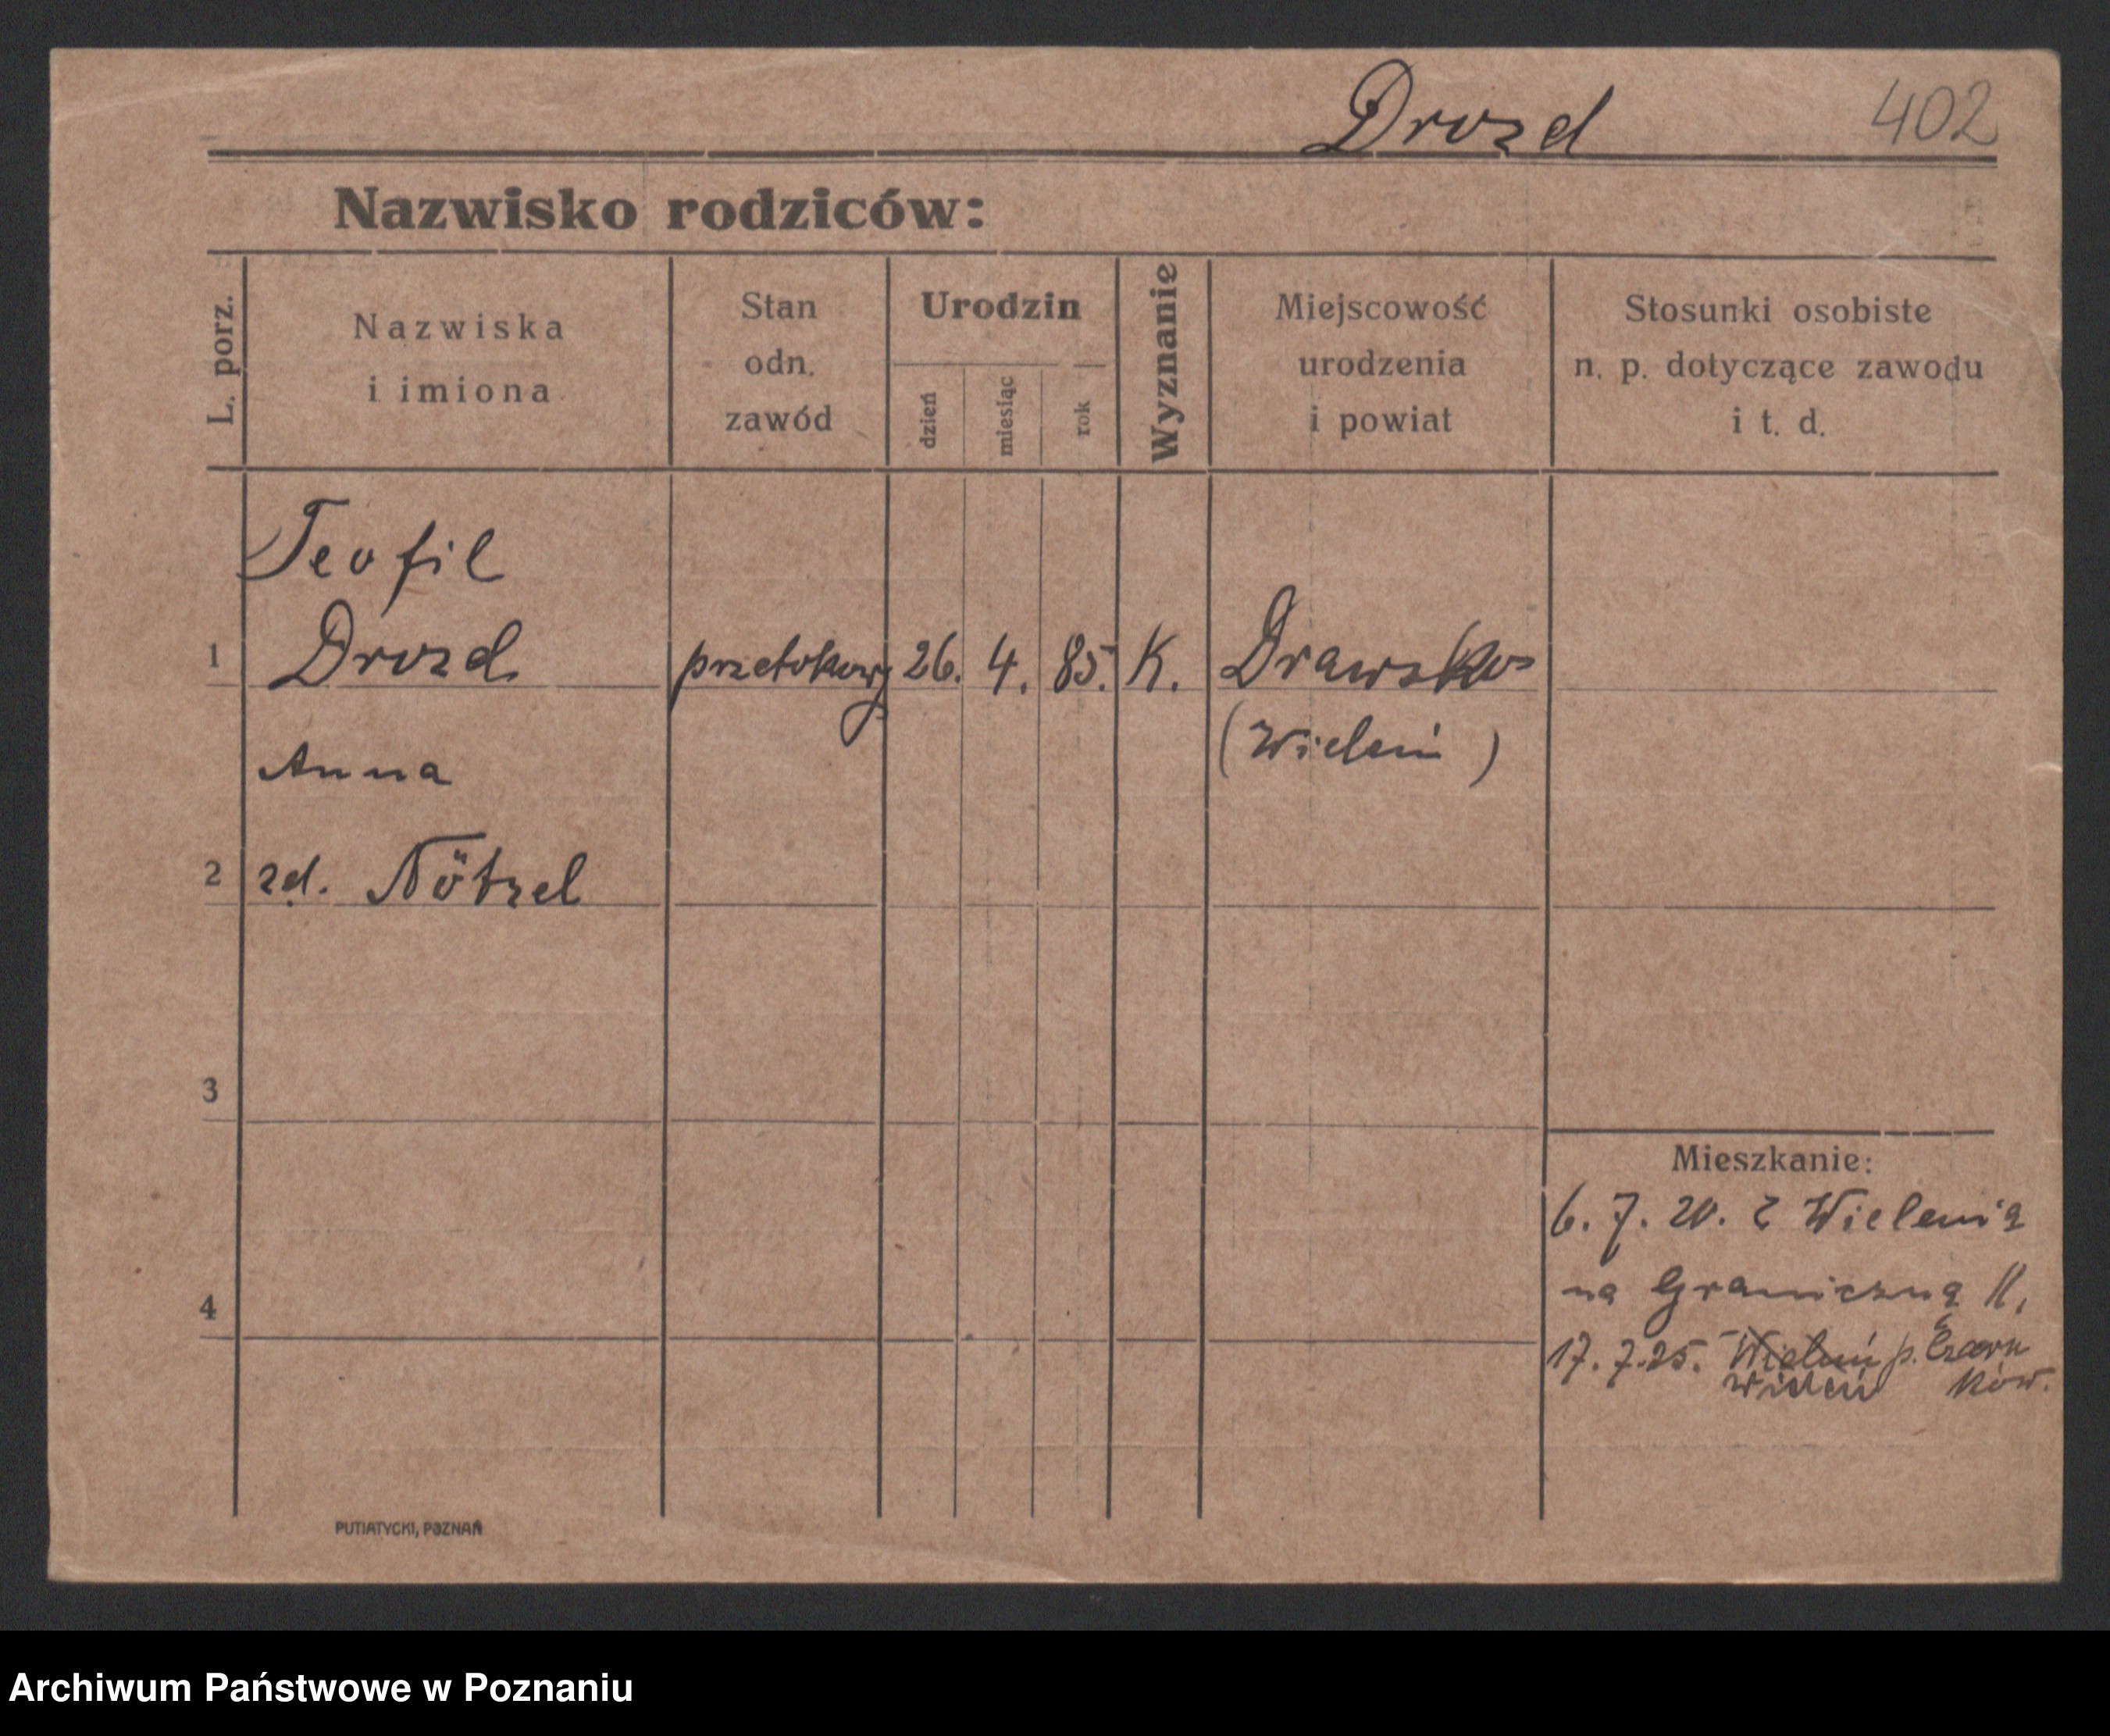 Drozd 402
Nazwisko rodziców:
L. porz.
Nazwiska
i imiona
Stan
odn.
zawód
Urodzin
dzień
miesiąc
rok
Wyznanie
Miejscowość
urodzenia
i powiat
Stosunki osobiste
n. p. dotyczące zawodu
i t. d.
Teofil
1 Drozd przetokowy 26. 4. 85. K. Drawsko
(Wieleń)
Anna
2 zd. Nötzel
3
4
Mieszkanie:
6. 7. 20. z Wielenia
na Graniczną 11,
17. 7. 25. Wieluń p. Czarn
Wieleń ków.
PUTIATYCKI, POZNAŃ
Archiwum Państwowe w Poznaniu